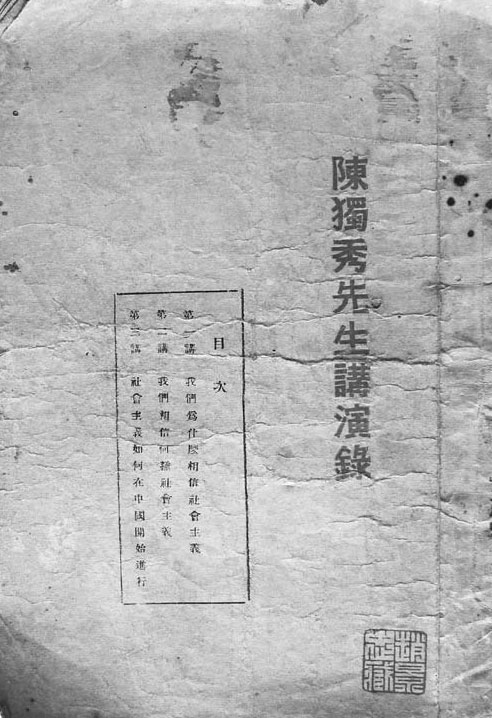 陳獨秀先生講演錄
目次
第一講 我們爲什麽相信社會主義
第二講 我們相信何種社會主義
第三講 社會主義如何在中國開始進行